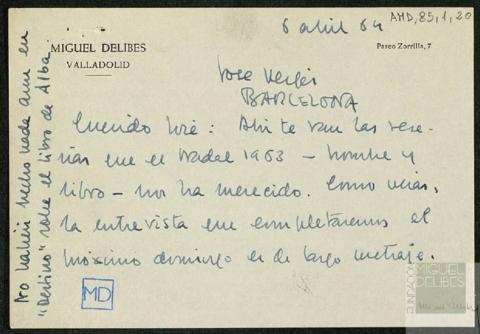 6 abril 64
AMD,85,1,20
MIGUEL DELIBES
VALLADOLID
Paseo Zorrilla, 7
José Vergés
BARCELONA
Querido José: Ahí te van las rese-
ñas que el Nadal 1963 – hombre y
libro – nos ha merecido. Como verás,
la entrevista que completaremos el
próximo domingo es de largo metraje.
No habéis hecho nada aún en
"Destino" sobre el libro de Alba
MD
FUNDACIÓN
MIGUEL
DELIBES